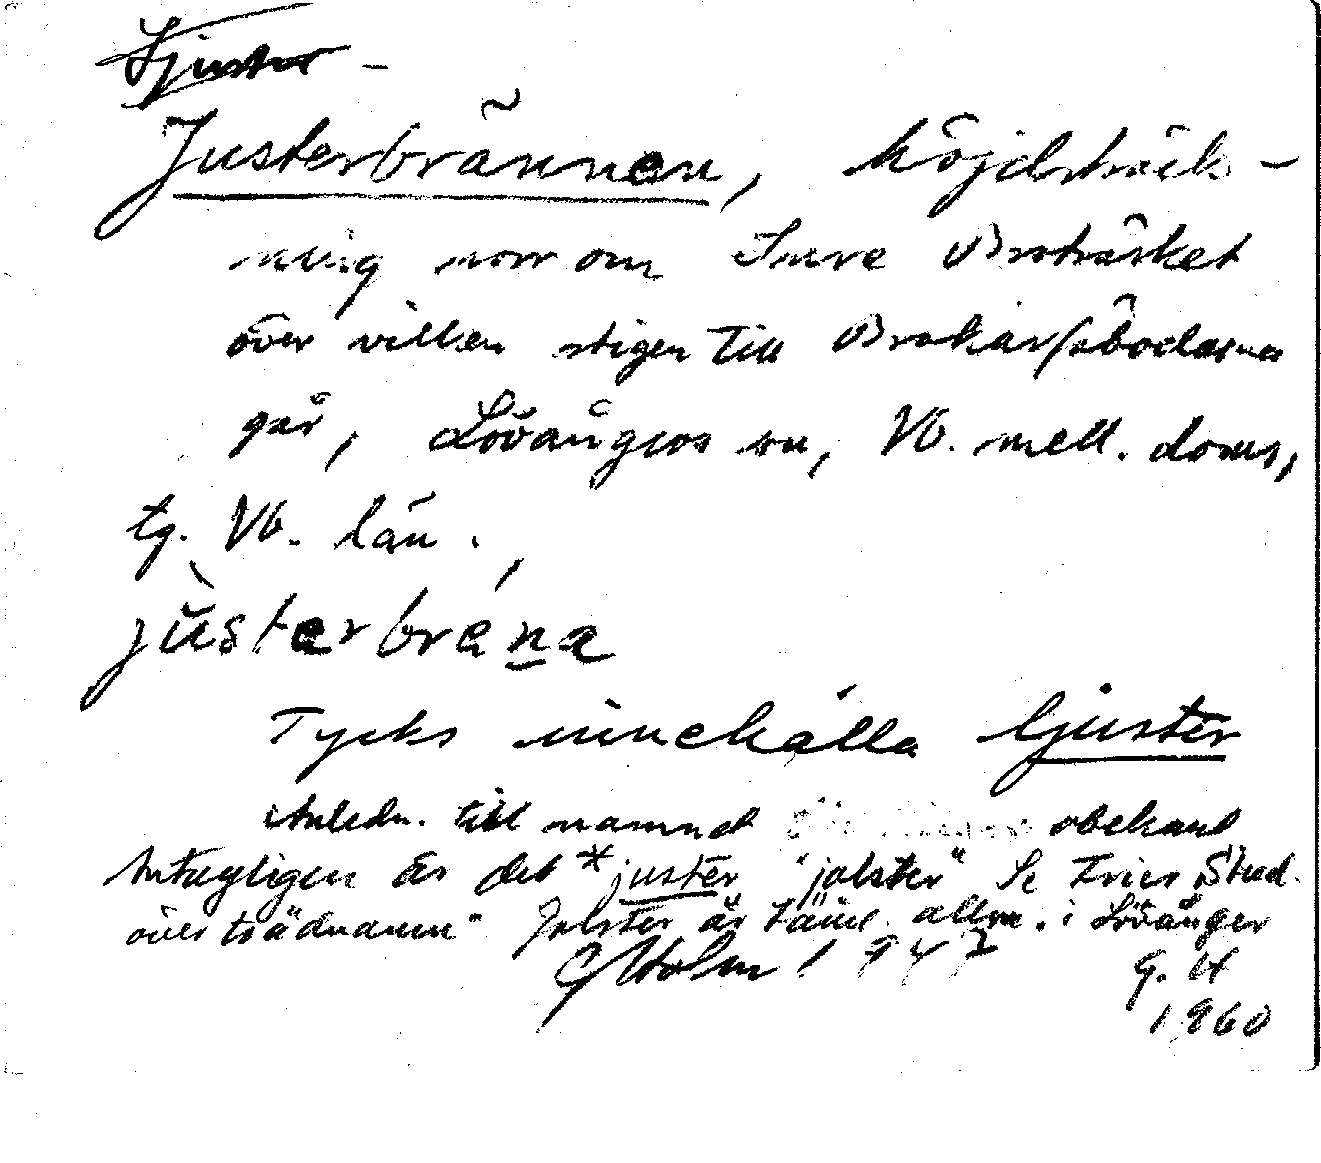 Ljuster -
Justerbrännen, höjdsträck-
ning norr om Inre Broträsket
över vilken stigen till Brokärsåbodarna
går, Lövångers sn, Vb. mell. doms,
tg. Vb. län.
justerbrena
Tycks innehålla ljuster
Anledn. till namnet obekant
Antagligen är det *juster "jolster" Se Fries Stud.
över trädnamn" Jolster är täml. allm. i Lövånger
G Holm 1947 G. H
1960